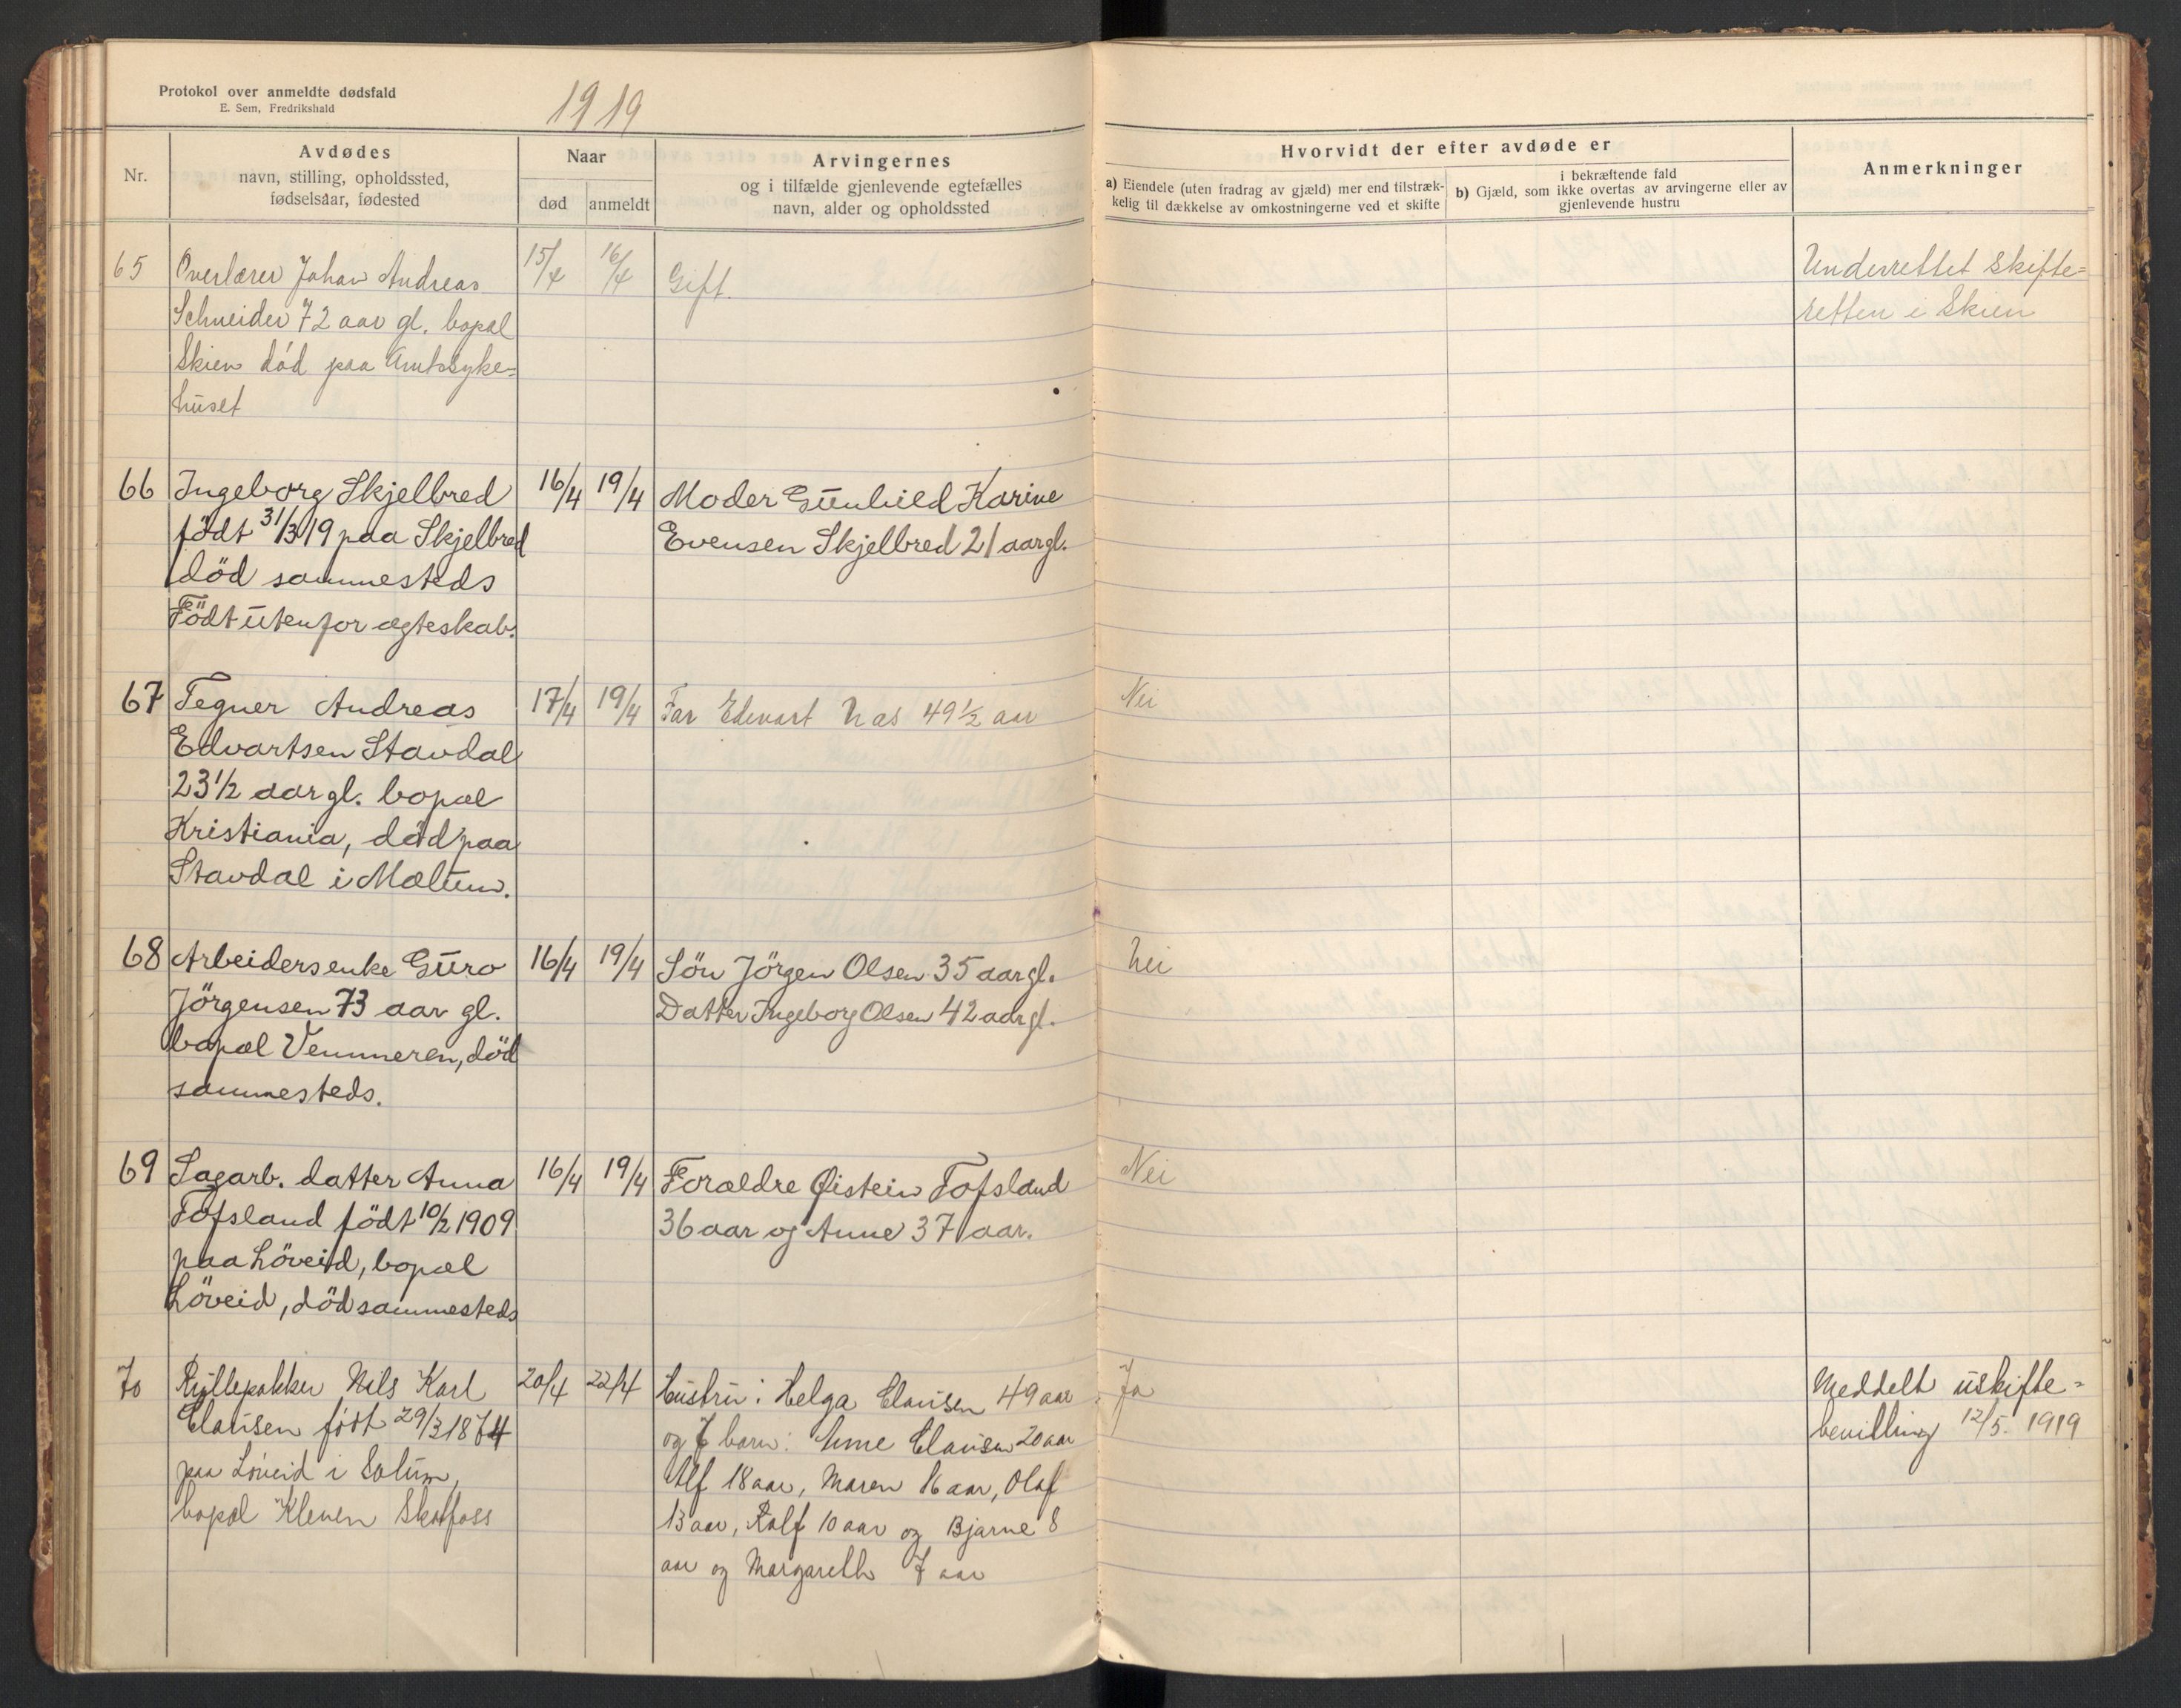 Protokol over anmeldte dødsfald
E. Sem, Fredrikshald
1919
Nr.
Avdødes
navn, stilling, opholdssted,
fødselsåar, fødested
Naar
død
anmeldt
Arvingernes
og i tilfælde gjenlevende egtefælles
navn, alder og opholdssted
Hvorvidt der efter avdøde er
a) Eiendele (uten fradrag av gjæld) mer end tilstræk-
kelig til dækkelse av omkostningerne ved et skifte
i bekræftende fald
b) Gjæld, som ikke overtas av arvingerne eller av
gjenlevende hustru
Anmerkninger
65 Overlærer Johan Andreas 15/4 16/4 Gift. Underrettet skifte=
Schneider 72 aar gl. bopæl retten i Skien
Skien död paa Amtssyke=
huset
66 Ingeborg Skjelbred 16/4 19/4 Moder Gunhild Karine
födt 31/3 19 paa Skjelbred Evensen Skjelbred 21 aar gl.
död sammesteds
Födt utenfor ægteskab.
67 Tegner Andreas 17/4 19/4 Far Edvart 49 1/2 aar Nei
Edvartsen Stavdal
23 1/2 aar gl. bopæl
Kristiania, död paa
Stavdal i Mælum.
68 Arbeidersenke Guro 16/4 19/4 Sön Jörgen Olsen 35 aar gl. Nei
Jörgensen 73 aar gl. Datter Ingeborg Olsen 42 aar gl.
bopæl Vemmeren, död
sammesteds.
69 Sagarb. datter Anna 16/4 19/4 Forældre Øistein Tofsland Nei
Tofsland födt 10/2 1909 36 aar og Anne 37 aar.
paa Löveid, bopæl
Löveid, död sammesteds
70 Rullepakker Nils Karl 20/4 22/4 Hustru: Helga Clausen 49 aar Ja Meddelt uskifte=
Clausen födt 29/3 1874 og 7 barn: Anne Clausen 20 aar bevilling 12/5. 1919
paa Löveid i Solum, Alf 18 aar, Maren 16 aar, Olaf
bopæl Kleven Skotfoss 13 aar, Rolf 10 aar og Bjarne 8
aar og Margareth 7 aar